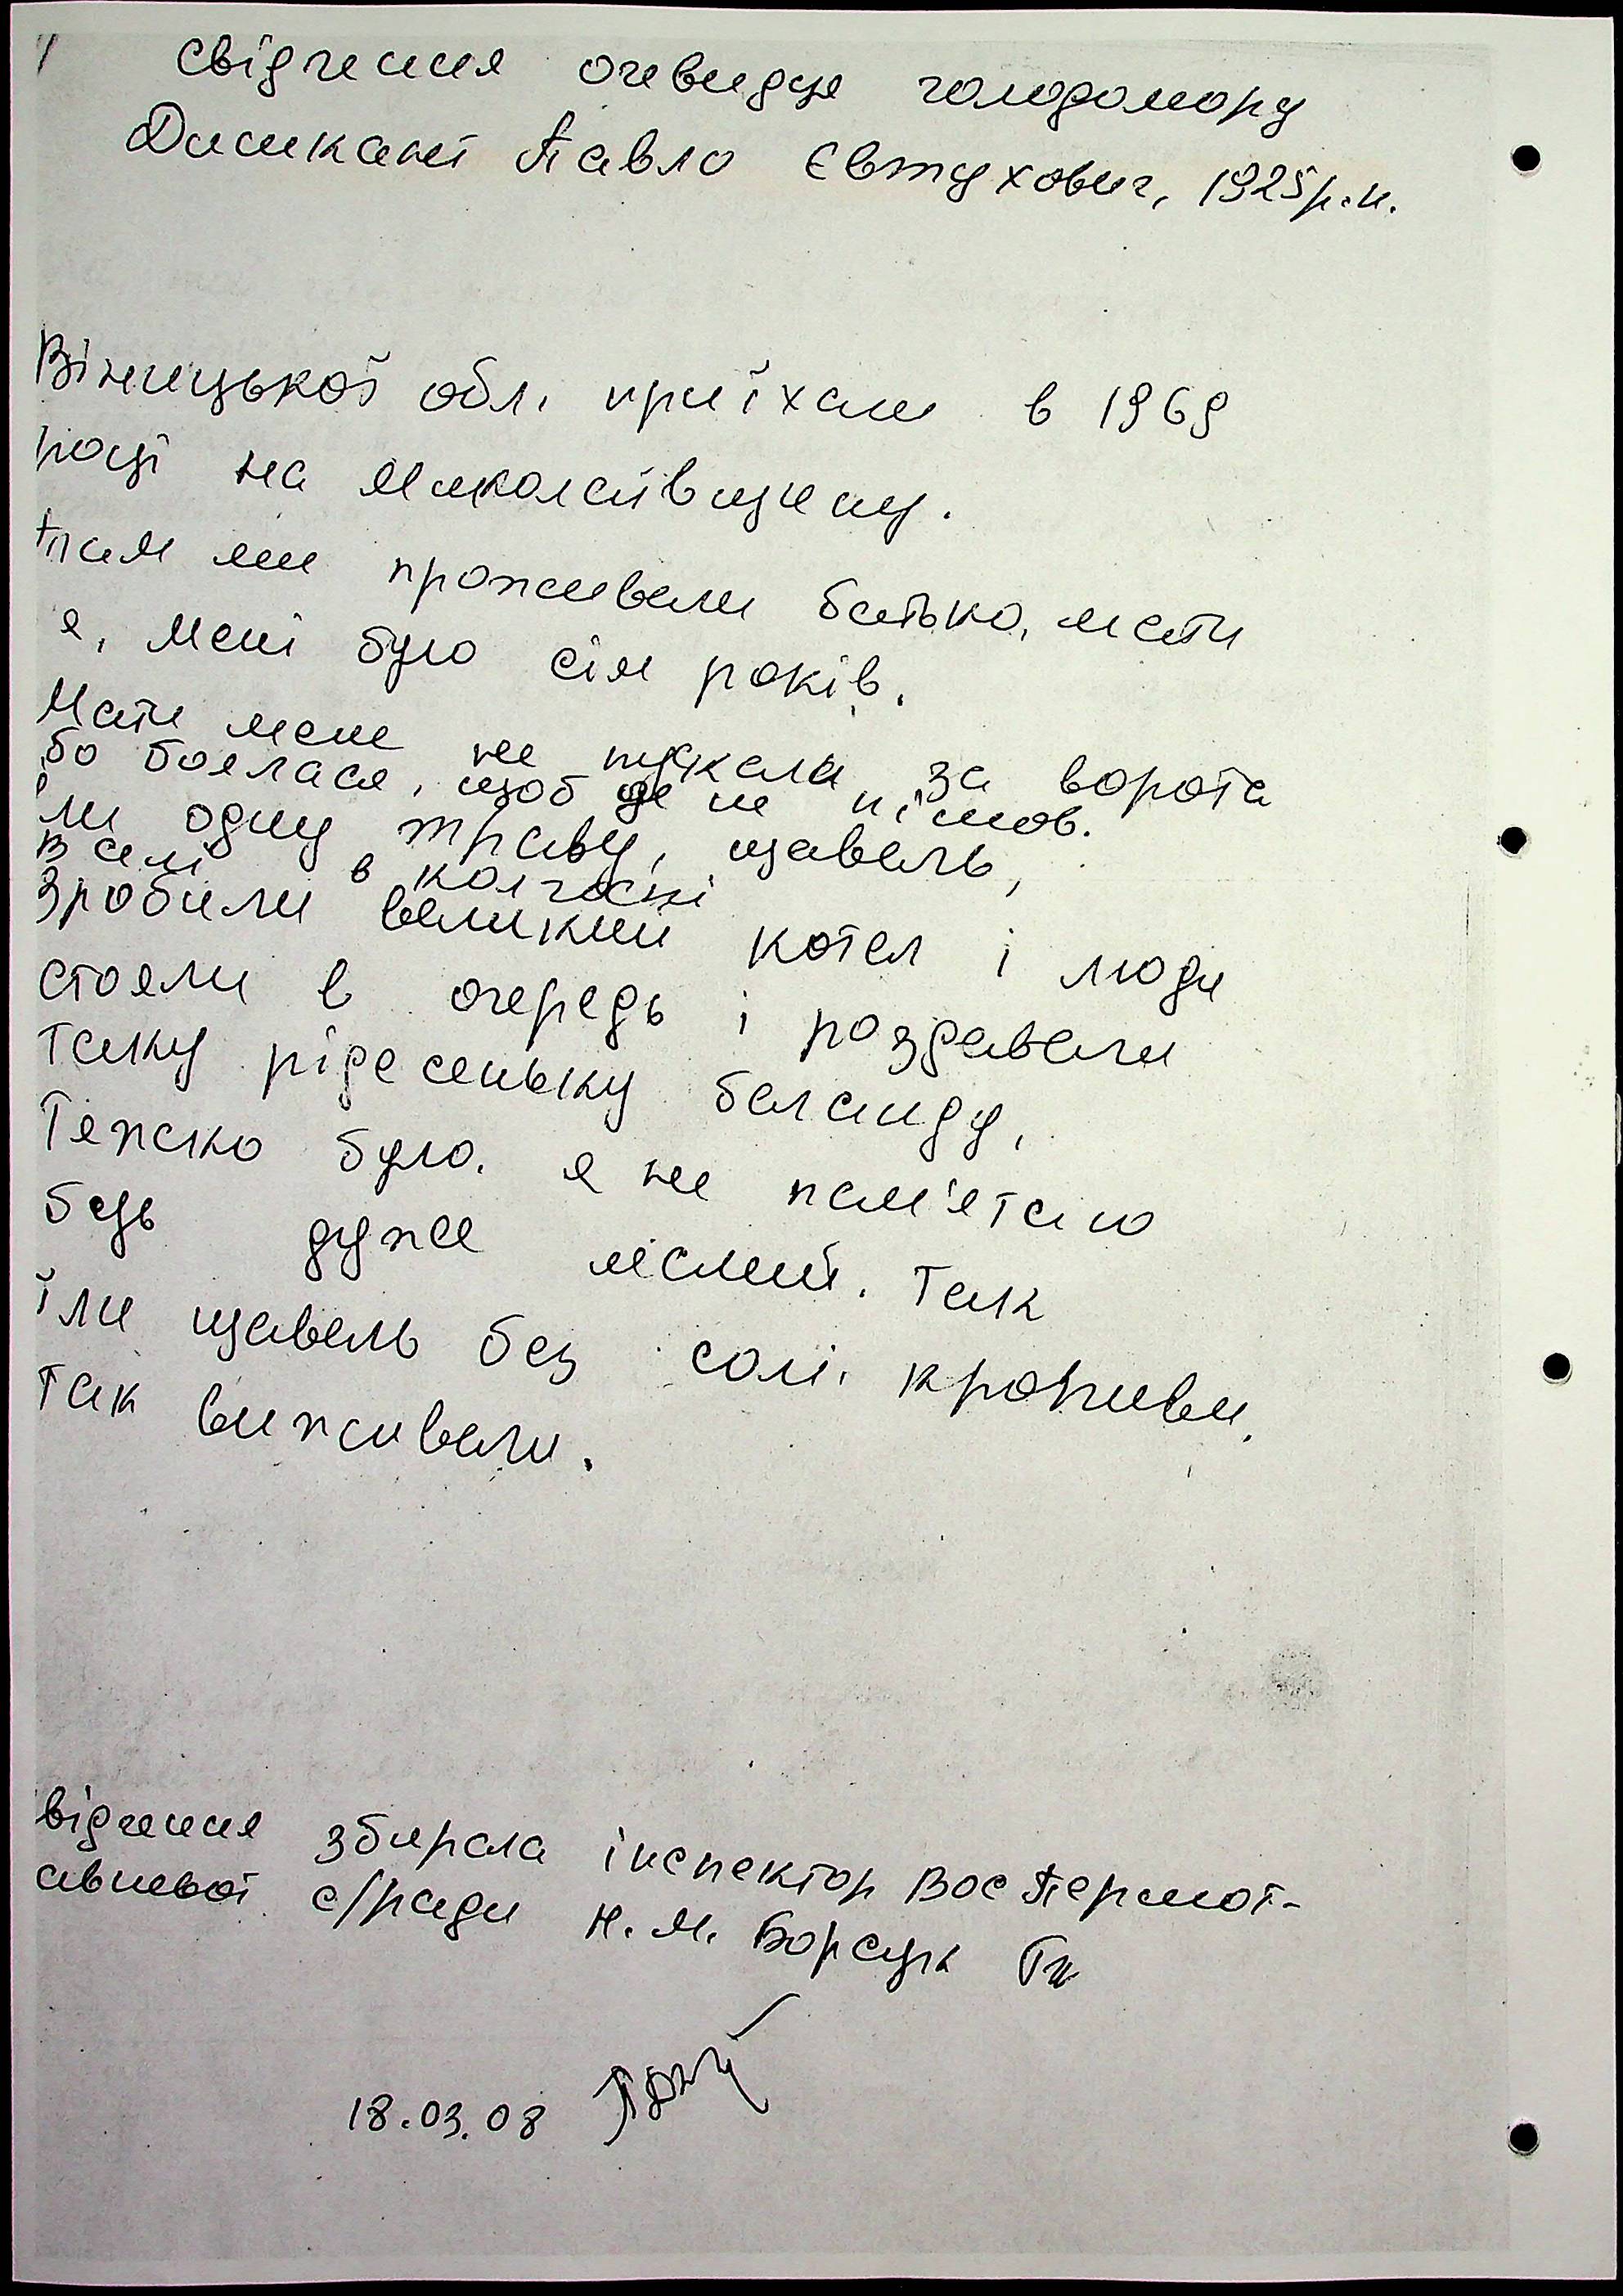 свідчення очевидця голодомору
Дисикант Павло Євтухович, 1925 р.н.
Вінницької обл. приїхали в 1969
році на Миколаївщину.
там ми проживали батько, мати
я, мені було сім років.
Мати мене не пускала за ворота
бо боялася, щоб де не пішов.
ли одну траву, щавель,
в селі в колгоспі
зробили великий котел і люди
стояли в очередь і роздавали
таку рідесеньку баланду,
Тяжко було. я не пам'ятаю
був дуже малий. Так
їли щавель без солі, кропиви.
так виживали.
відчення збирала інспектор Воє Першот-
авневої с/ради Н.М. Борсук
18.03.08